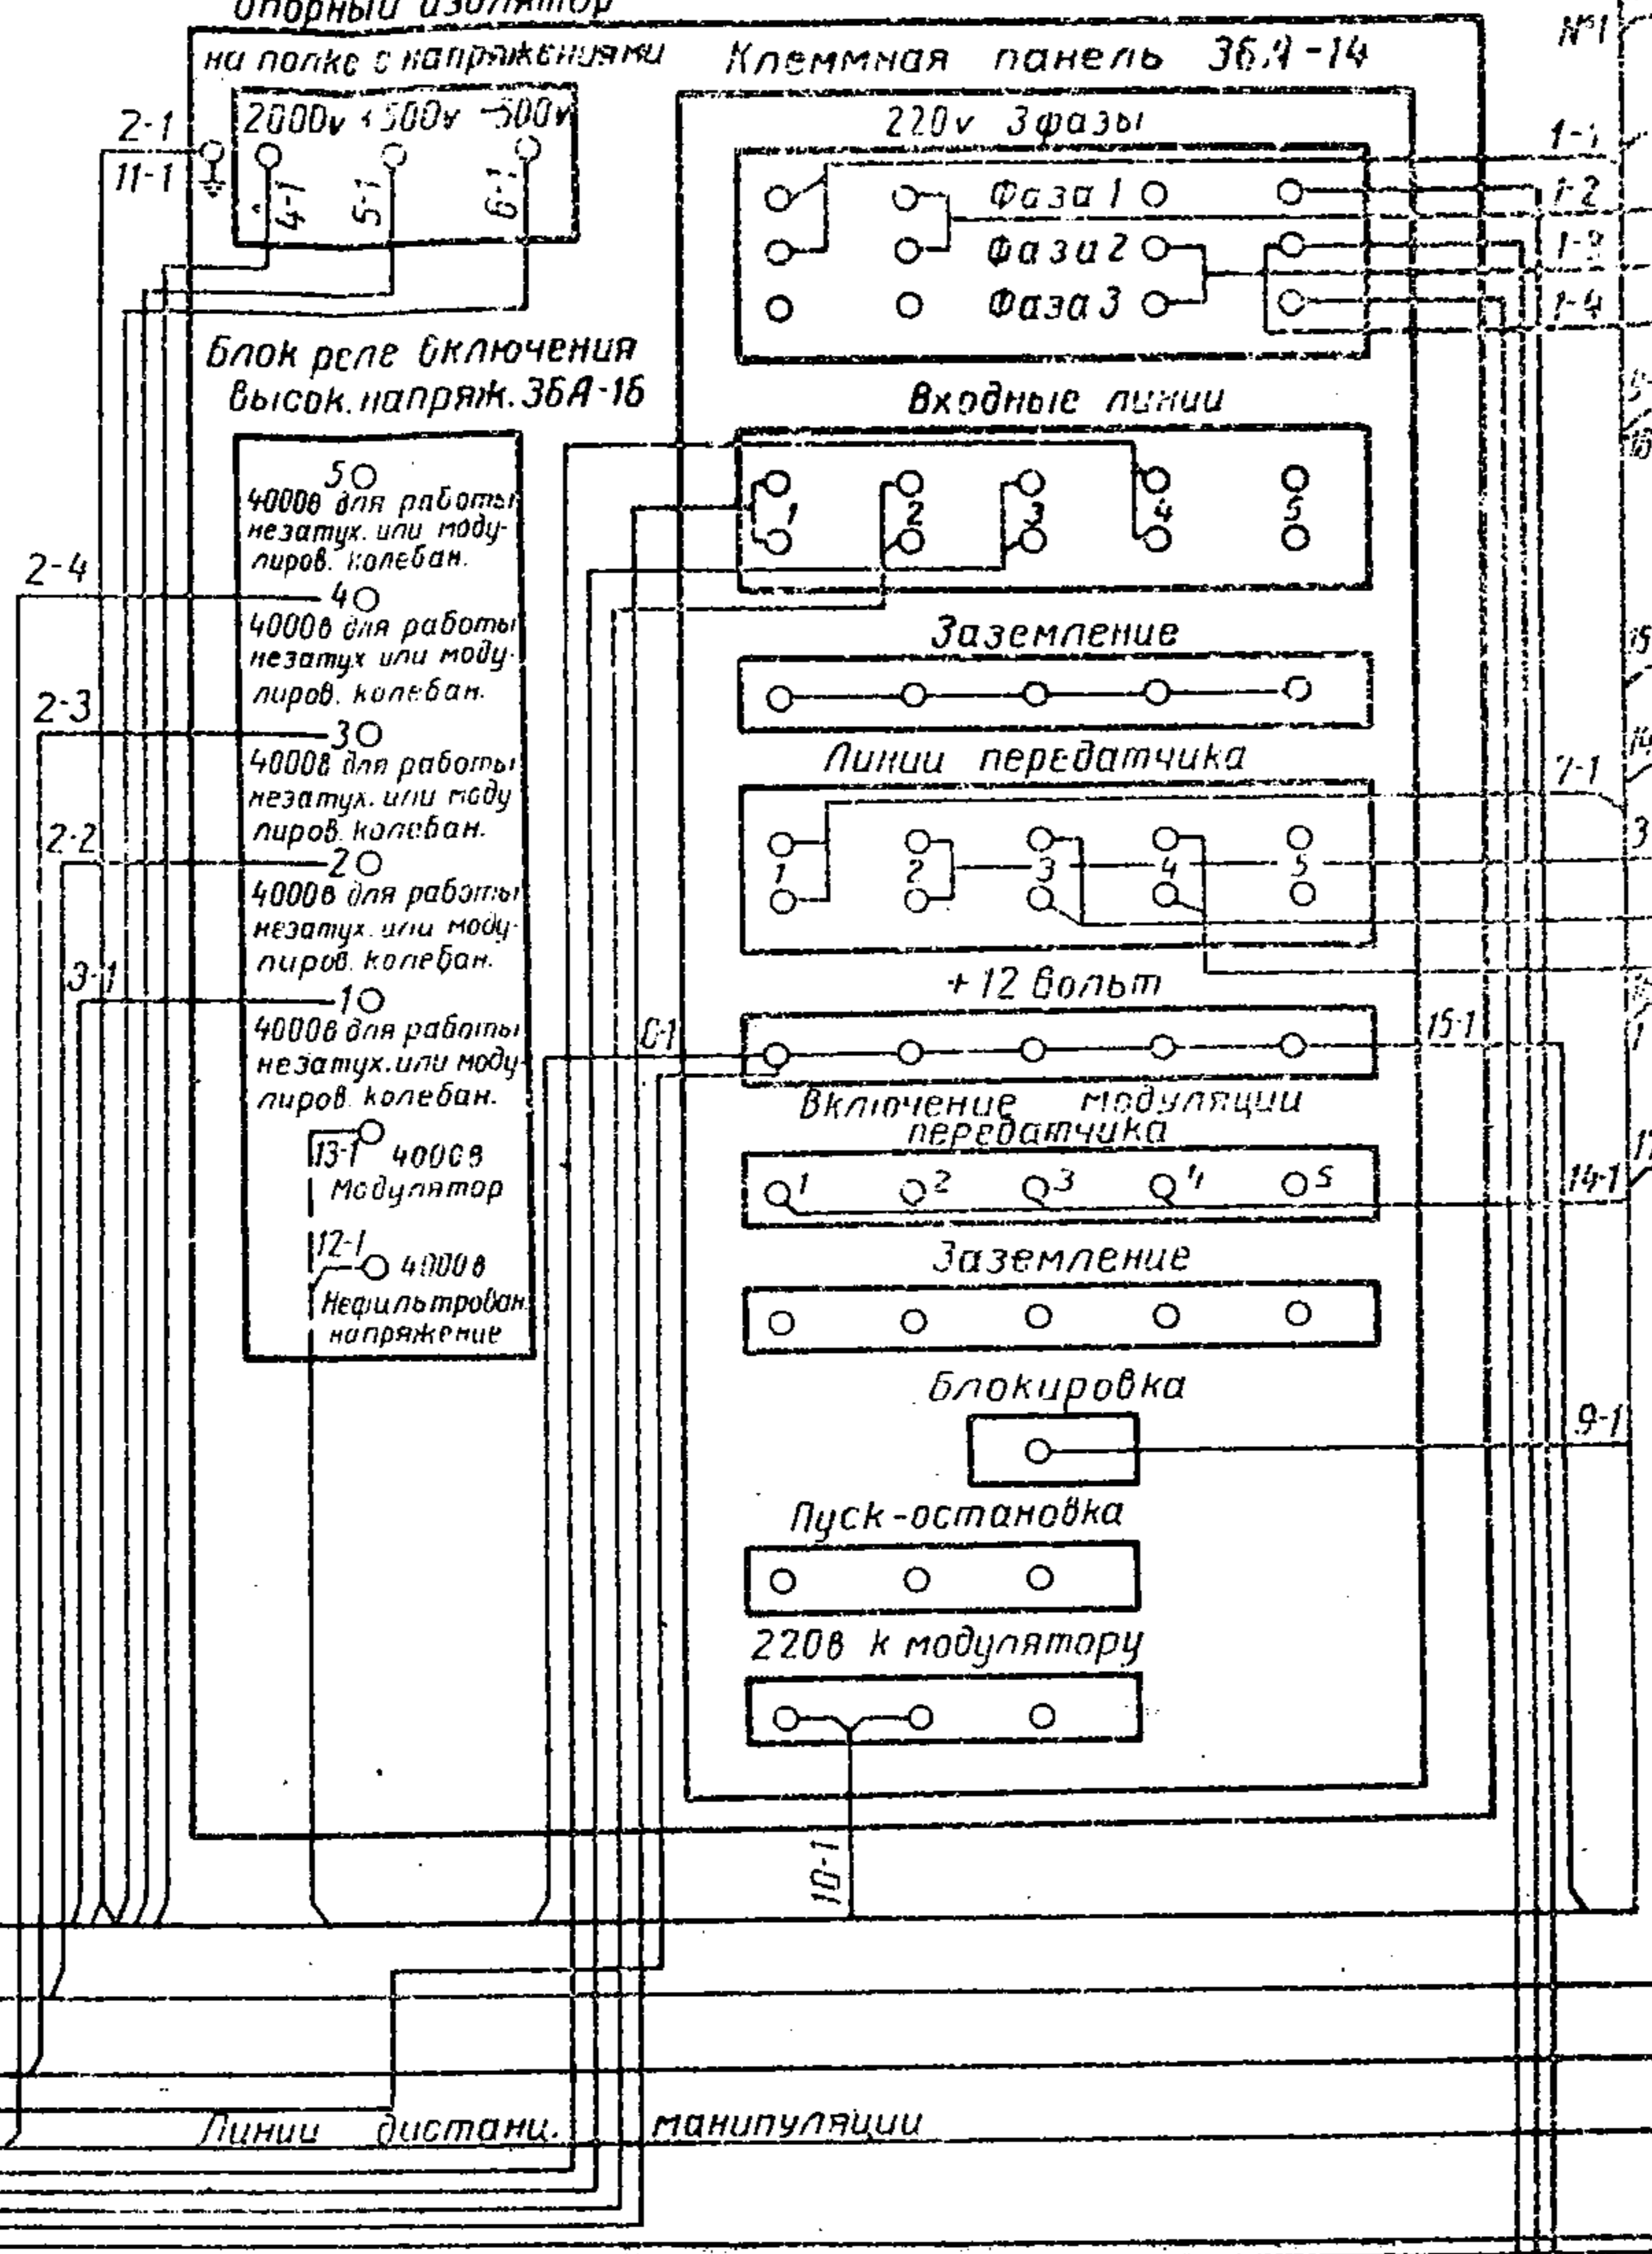 опорный изолятор
на полке с напряжениями
2000v +500v -500v
2-1
11-1
4-1
5-1
6-1
Блок реле включения
высок. напряж. 36А-16
5
4000в для работы
незатух. или моду-
лиров. колебан.
2-4
4
4000в для работы
незатух или моду-
лиров. колебан.
2-3
3
4000в для работы
незатух. или моду
лиров. колебан.
2-2
2
4000в для работы
незатух. или моду-
лиров. колебан.
3-1
1
4000в для работы
незатух. или моду-
лиров. колебан.
13-1
4000в
Модулятор
12-1
4000в
Нефильтрован.
напряжение
Клеммная панель 36А-14
220v 3фазы
Фаза 1
Фаза 2
Фаза 3
Входные линии
1 2 3 4 5
Заземление
Линии передатчика
1 2 3 4 5
+12 Вольт
Включение модуляции
передатчика
1 2 3 4 5
Заземление
Блокировка
Пуск-остановка
220в к модулятору
10-1
№1
1-1
1-2
1-3
1-4
7-1
3
15-1
14-1
9-1
Линии дистанц. манипуляции